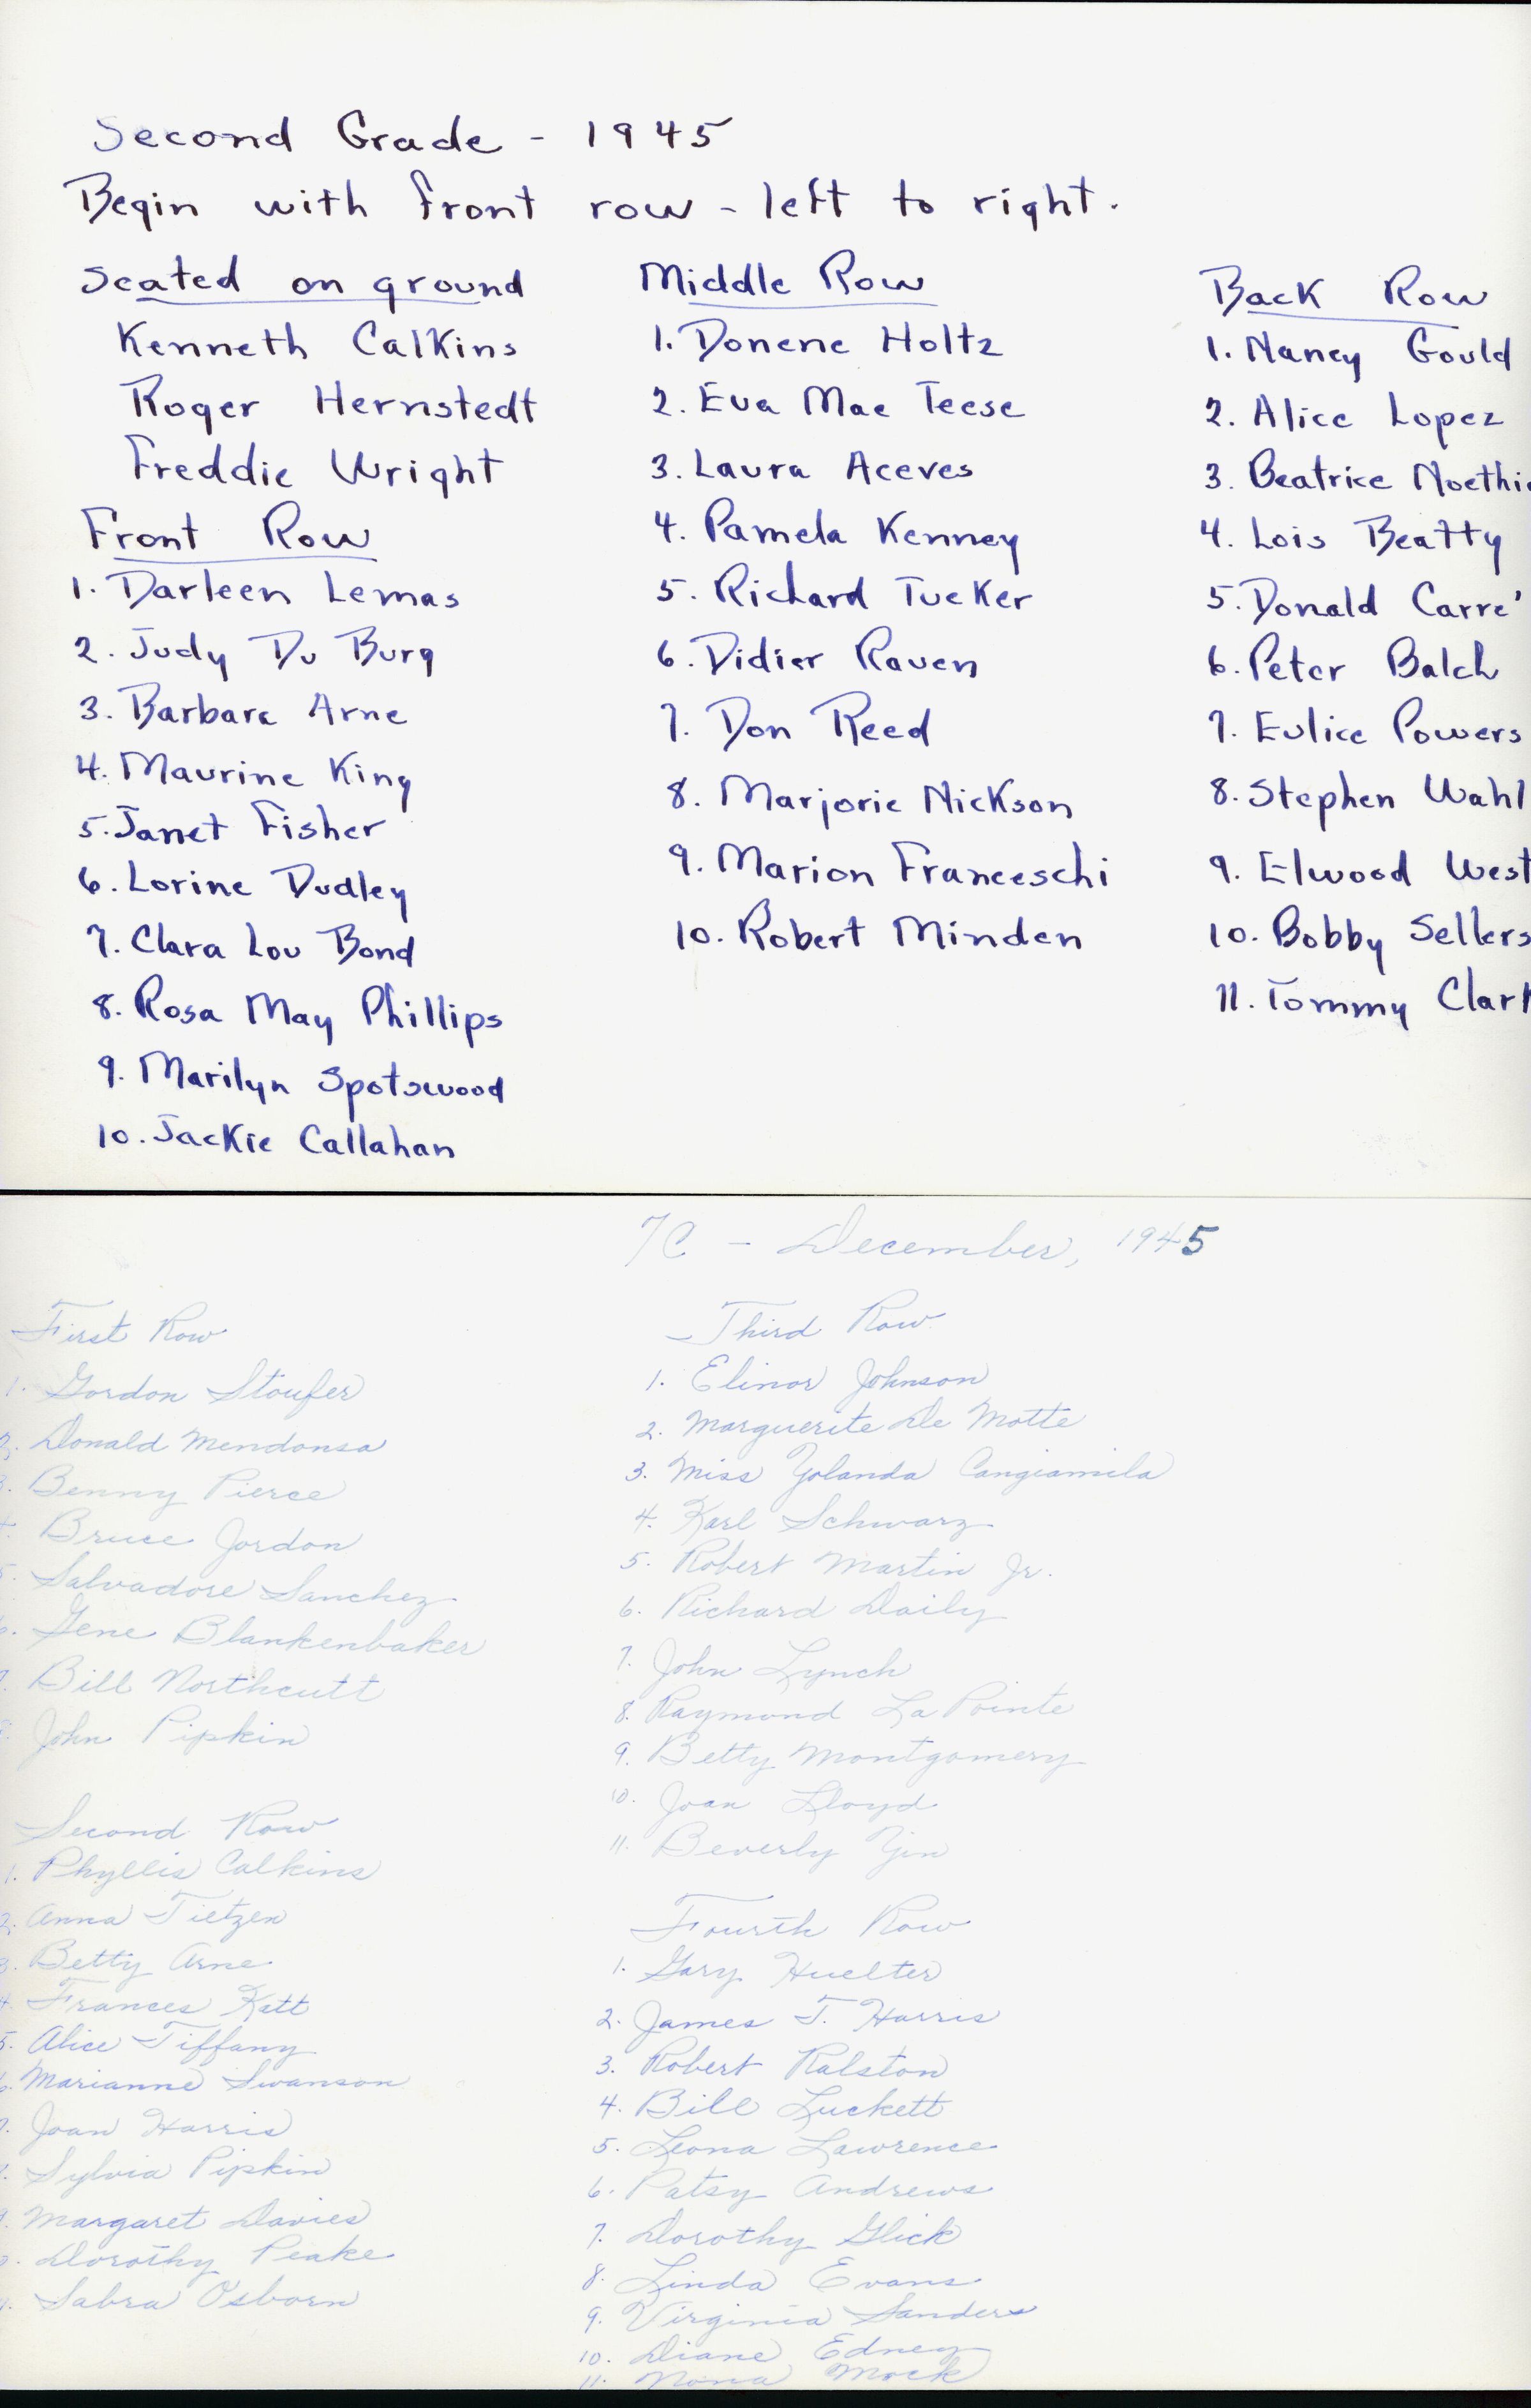 Second Grade - 1945
Begin with front row - left to right.
Seated on ground
Kenneth Calkins
Roger Hernstedt
Freddie Wright
Front Row
1. Darleen Lemas
2. Judy Du Burg
3. Barbara Arne
4. Maurine King
5. Janet Fisher
6. Lorine Dudley
7. Clara Lou Bond
8. Rosa May Phillips
9. Marilyn Spotswood
10. Jackie Callahan
Middle Row
1. Donene Holtz
2. Eva Mae Teese
3. Laura Aceves
4. Pamela Kenney
5. Richard Tucker
6. Didier Raven
7. Don Reed
8. Marjorie Nickson
9. Marion Franceschi
10. Robert Minden
Back Row
1. Nancy Gould
2. Alice Lopez
3. Beatrice
4. Lois Beatty
5. Donald Carre'
6. Peter Balch
7. Eulice Powers
8. Stephen Wahl
9. Elwood West
10. Bobby Sellers
11. Tommy
7C - December, 1945
First Row
1. Gordon Stoufer
2. Donald Mendonsa
3. Benny Pierce
4. Bruce Jordon
5. Salvadore Sanchez
6. Gene Blankenbaker
7. Bill Northcutt
John Pipkin
Second Row
1. Phyllis Calkins
2. Anna Tietzen
3. Betty Arne
4. Frances Katt
5. Alice Tiffany
6. Marianne Swanson
7. Joan Harris
Sylvia Pipkin
Margaret Davies
Dorothy Peake
Sabra Osborn
Third Row
1. Elinor Johnson
2. Marguerite De Motte
3. Miss Yolanda Cangiamila
4. Karl Schwarz
5. Robert Martin Jr.
6. Richard Daily
7. John Lynch
8. Raymond La Pointe
9. Betty Montgomery
10. Joan Lloyd
11. Beverly Yin
Fourth Row
1. Gary Huelter
2. James T. Harris
3. Robert Ralston
4. Bill Luckett
5. Leona Lawrence
6. Patsy Andrews
7. Dorothy Glick
8. Linda Evans
9. Virginia Sanders
10. Diane Edney
11. Nona Mock